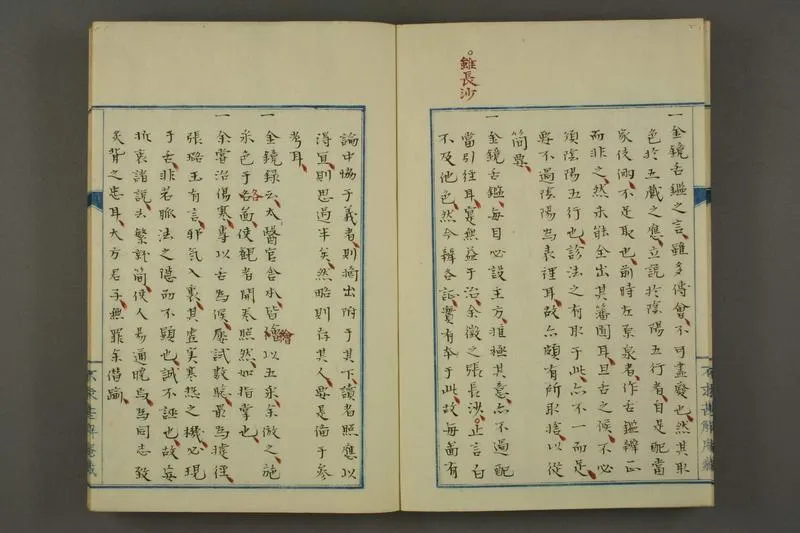 雖長沙
一金鏡舌鑑之言、雖多傅會、不可盡廢也、然其取
色於五臟之應、立説於陰陽五行者、自是配當
家伎倆、不足取也、前時左泉者、作舌鑑辨正
而非之、然未能全出其籓圍耳、且古之候、不必
須陰陽五行也、診法之有取于此、亦不一而足、
要不過陰陽為表裡耳、故亦頗有所取捨以從
簡要、
一金鏡舌鑑、每目必設主方、推極其意、亦不過配
當引徃耳、寔無益于治、余徵之張長沙、止言白
不及他色、然今辨各証、實有本于此、故每圖有
論中協于義者、則摘出附于其下、讀者照應以
得宜、則思過半矣、然略則存其人、要是備于參
考耳、
一金鏡錄云、太醫官舍本、皆繪以五采、余倣之、施
繪
采色于各圖、使覩者開卷照然、如指掌也、
各
一余嘗治傷寒、專以舌為候、屢試數驗、最為據徑、
張璐玉有言、邪氣入裏、其虛実寒熱之機、必現
于舌、非若脈法之隱而不顕也、誠不誣也、故
折衷諸説、去繁就簡、使人易通曉、為同志
炙背之忠耳、大方君子、無罪余僭踰、